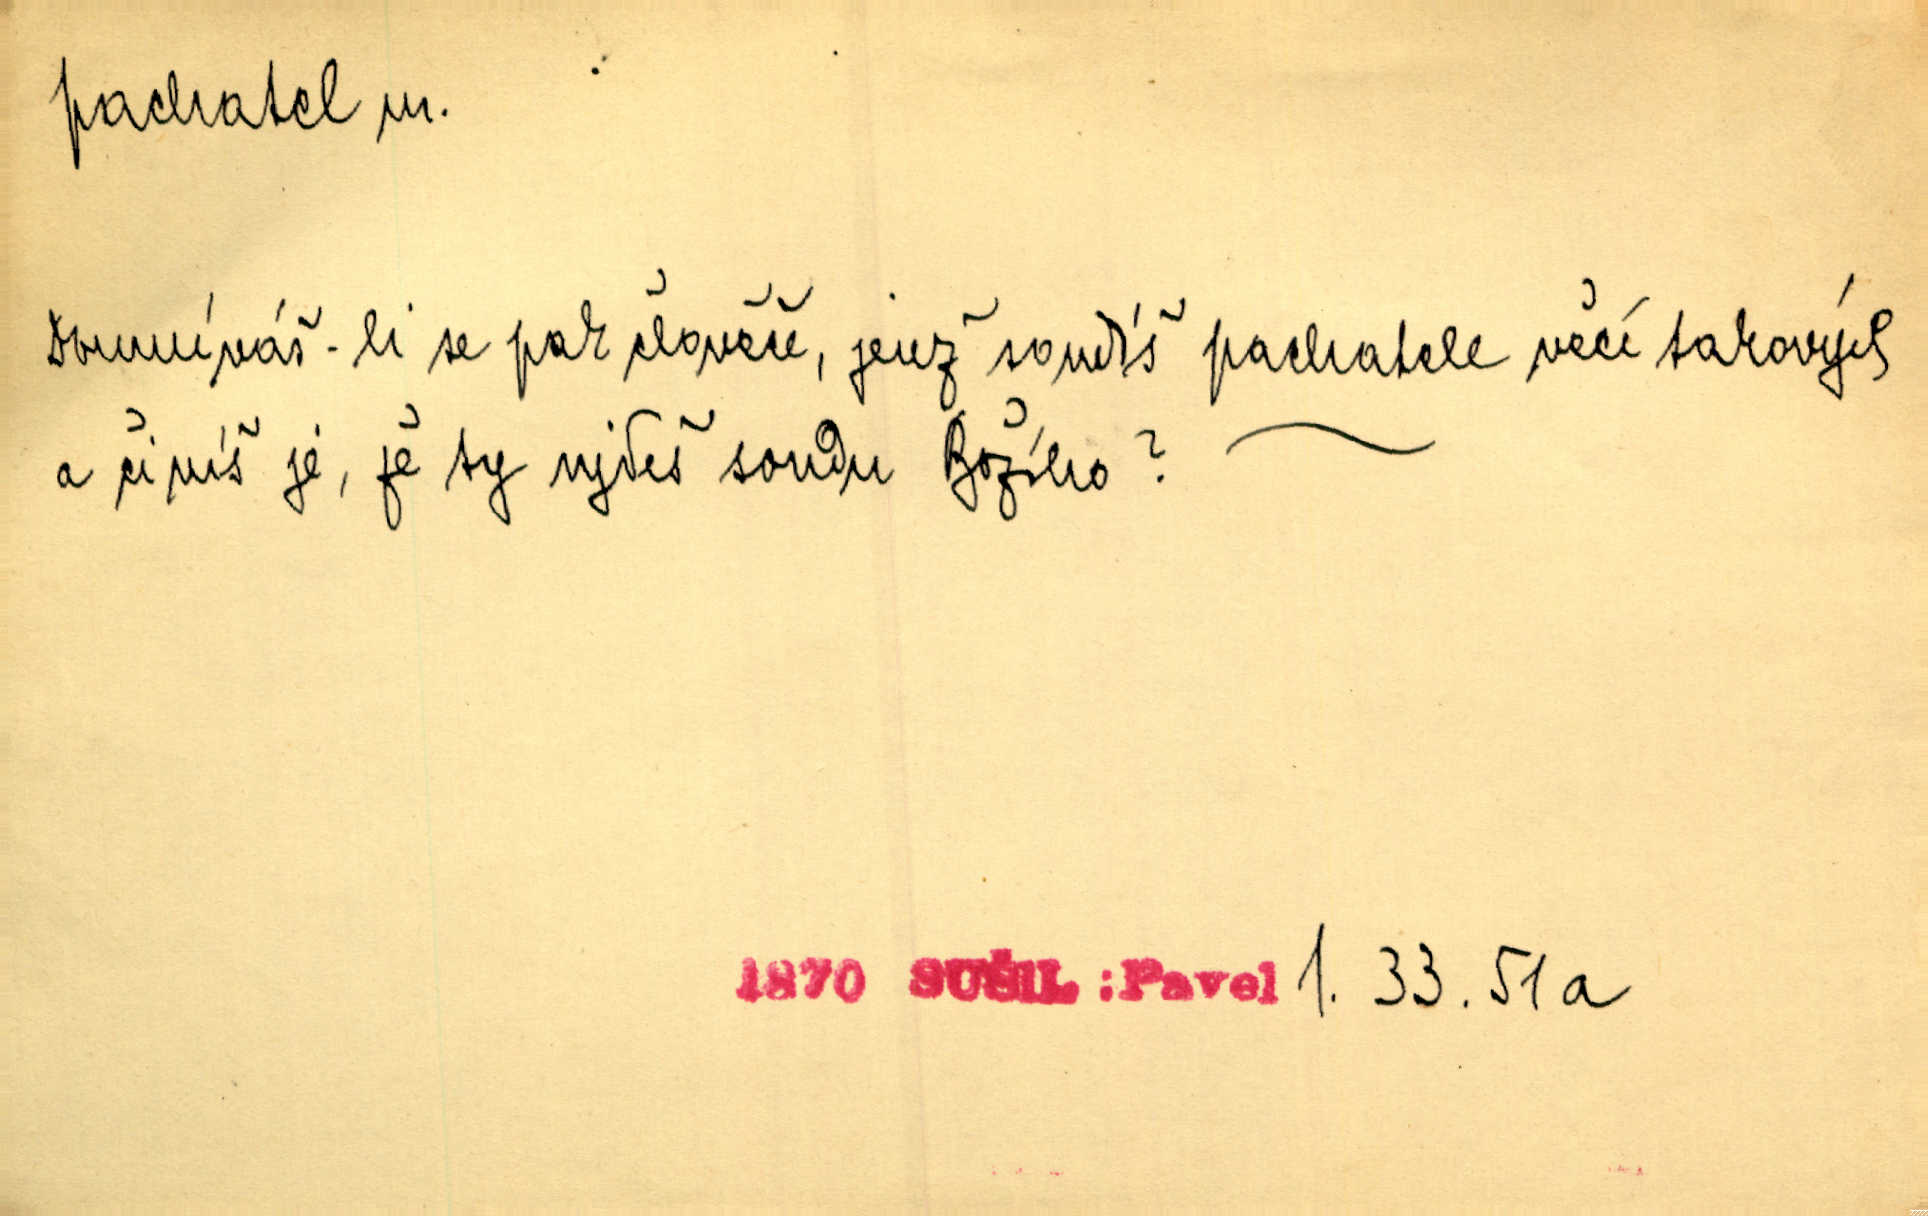 pachatel m.
Domníváš-li se pak člověče, jenž soudíš pachatele věcí takových
a činíš je, že ty ujdeš soudu Božího?
1870 SUŠIL:Pavel 1. 33. 51a